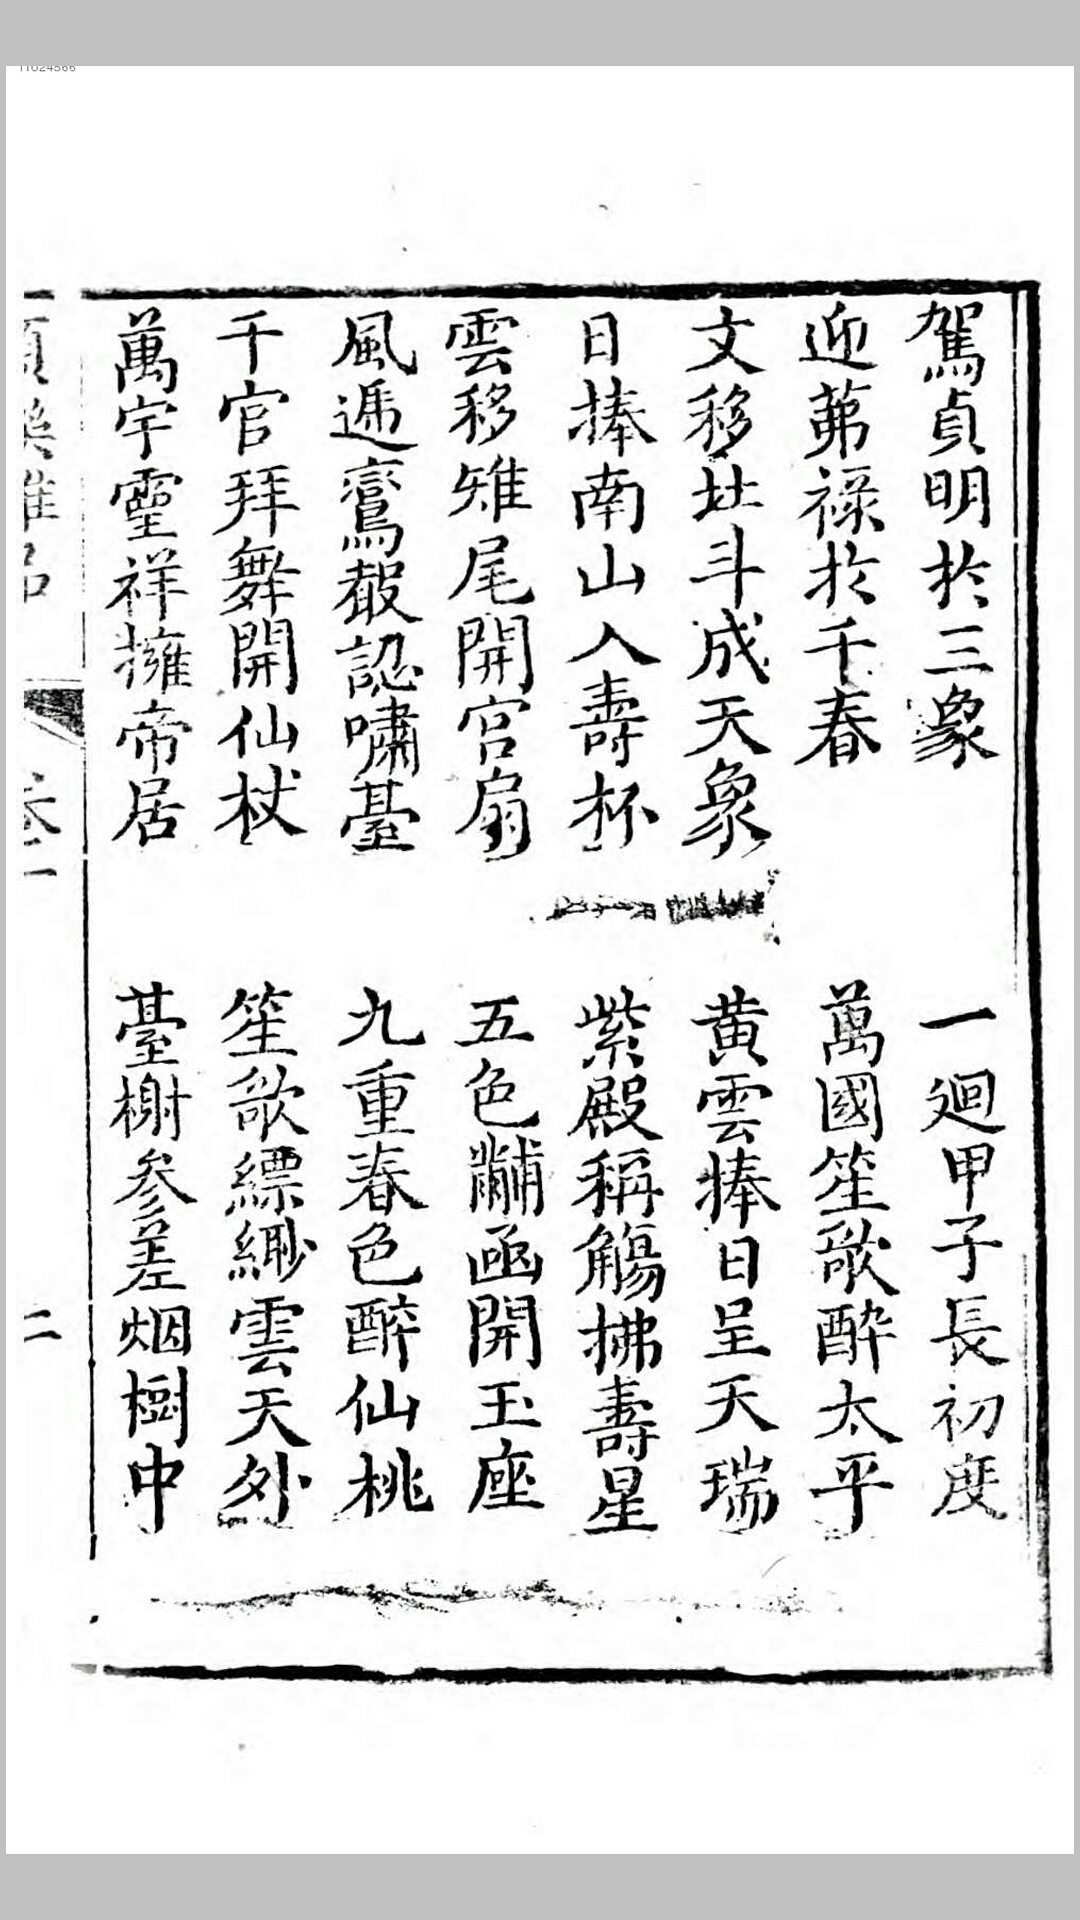 駕貞明於三象
迎茀祿於千春
文移北斗成天象
日捧南山入壽杯
雲移雉尾開宮扇
風遞鸞聲認嘯臺
千官拜舞開仙杖
萬宇靈祥擁帝居
一廻甲子長初度
萬國笙歌酔太平
黄雲捧日呈天瑞
紫殿稱觴拂壽星
五色黼函開玉座
九重春色醉仙桃
笙歌縹緲雲天外
臺榭参差烟樹中
二